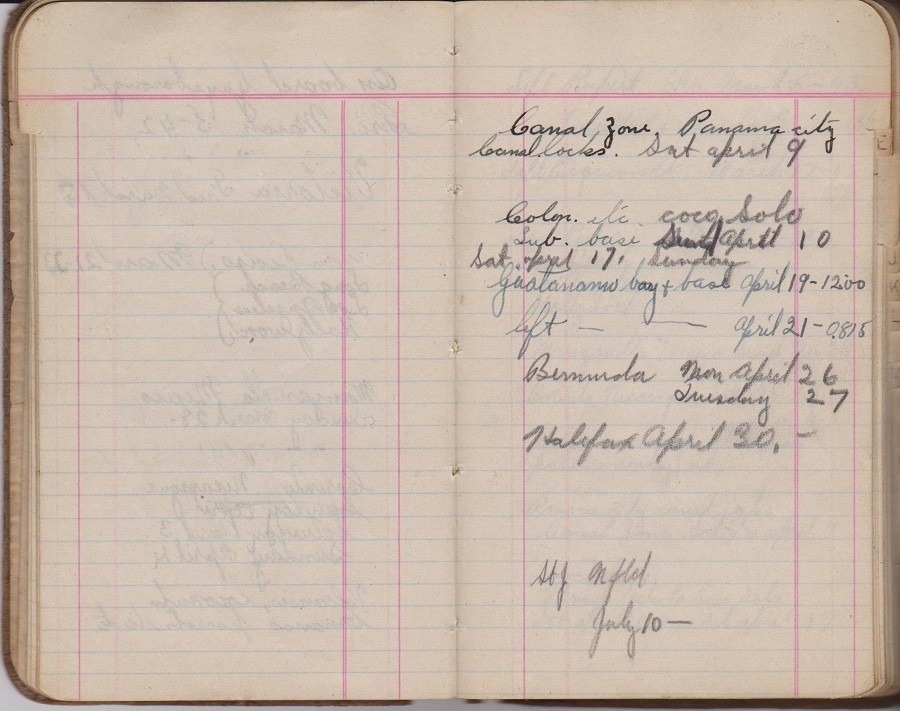 Canal Zone, Panama city
Canal locks. Sat april 9
Colon. etc. coco Solo
Sub. base April 10
Sat. april 17, Sunday
Guatanamo bay + base April 19-1200
left — — April 21-0815
Bermuda Mon April 26
Tuesday 27
Halifax April 30. —
Nfld
July 10 —